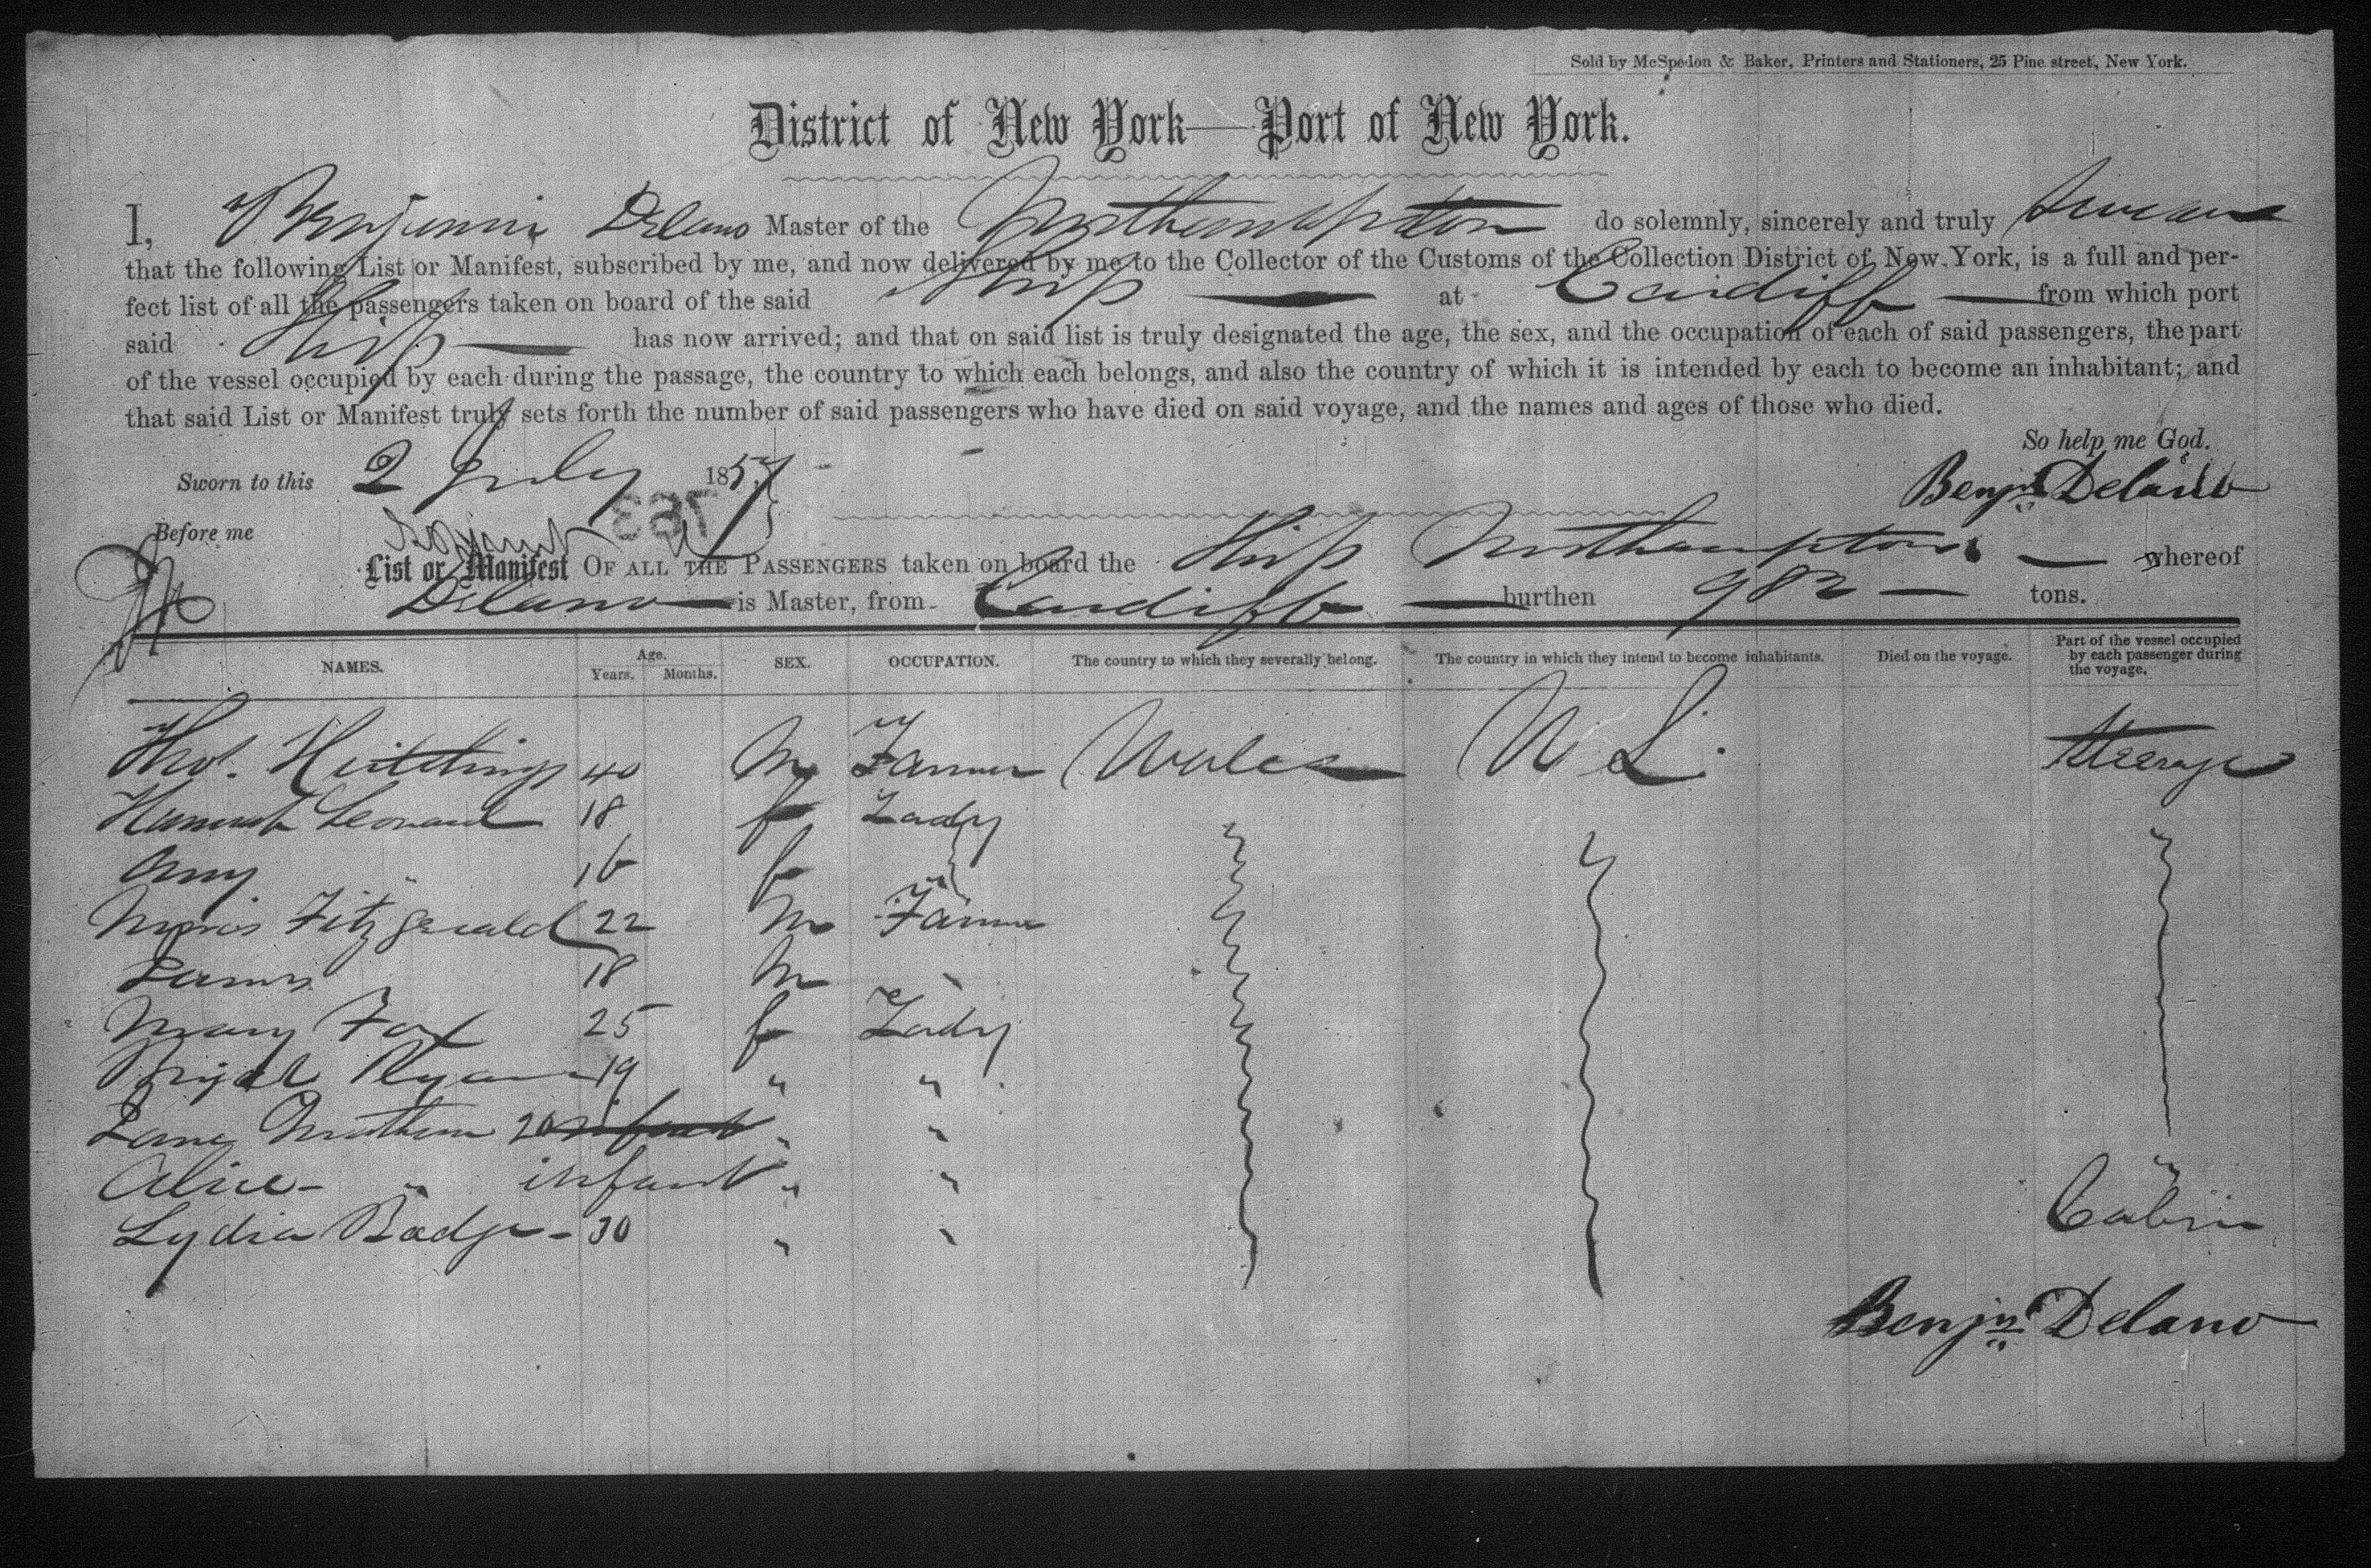 Sold by McSpedon & Baker, Printers and Stationers, 25 Pine street, New York.
District of New York—Port of New York.
I, Benjamin Delano Master of the Northampton do solemnly, sincerely and truly swear
that the following List or Manifest, subscribed by me, and now delivered by me to the Collector of the Customs of the Collection District of New York, is a full and per-
fect list of all the passengers taken on board of the said Ship — at Cardiff — from which port
said Ship — has now arrived; and that on said list is truly designated the age, the sex, and the occupation of each of said passengers, the part
of the vessel occupied by each during the passage, the country to which each belongs, and also the country of which it is intended by each to become an inhabitant; and
that said List or Manifest truly sets forth the number of said passengers who have died on said voyage, and the names and ages of those who died.
So help me God.
Sworn to this 2 July 1857 Benjn Delano
Before me
List or Manifest OF ALL THE PASSENGERS taken on board the Ship Northampton — whereof
Delano — is Master, from Cardiff — burthen 982 — tons.
NAMES. Age. Years. Months. SEX. OCCUPATION. The country to which they severally belong. The country in which they intend to become inhabitants. Died on the voyage. Part of the vessel occupied by each passenger during the voyage.
Thos. Hutchings 40 M Farmer Wales U S. Steerage
Hannah Leonard 18 f Lady
Amy " 16 f "
Morris Fitzgerald 22 M Farmer
James 18 M "
Mary Fox 25 f Lady
Brigdt Ryan 19 " "
Jane 20 infant " "
Alice - " infant " "
Lydia Badge - 30 " " Cabin
Benjn Delano